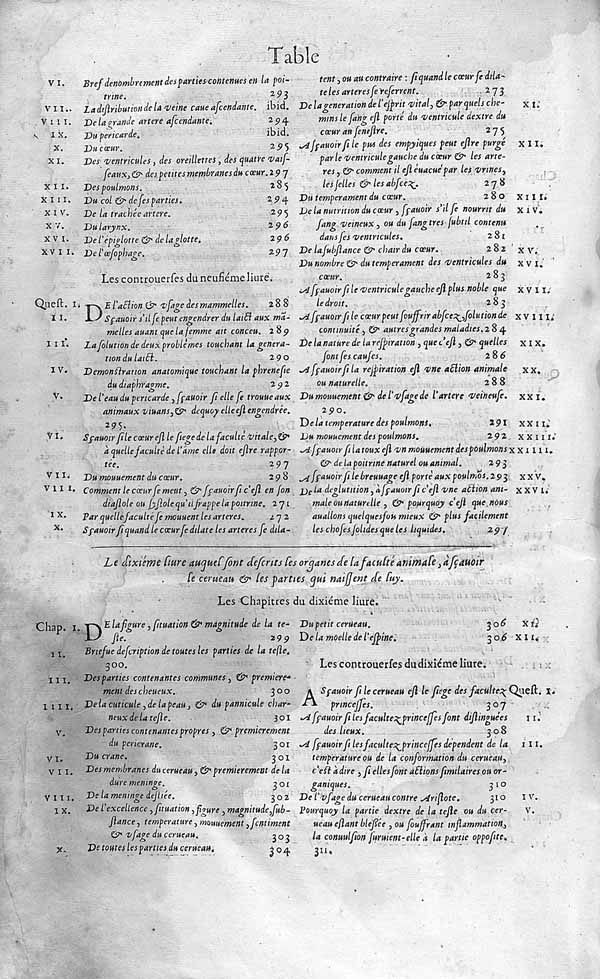 Table
VI. Bref denombrement des parties contenues en la poi-
trine. 293
VII. La distribution de la veine caue ascendante. ibid.
VIII. De la grande artere ascendante. 294
IX. Du pericarde. ibid.
X. Du cœur. 295
XI. Des ventricules, des oreillettes, des quatre vais-
seaux, & des petites membranes du cœur. 297
XII. Des poulmons. 285
XIII. Du col & de ses parties. 294
XIV. De la trachée artere. 295
XV. Du larynx. 296
XVI. De l'epiglotte & de la glotte. 296
XVII. De l'œsophage. 297
Les controuerses du neufiéme liure.
Quest. I. DE l'action & vsage des mammelles. 288
II. Sçauoir s'il se peut engendrer du laict aux ma-
melles auant que la femme ait conceu. 289
III. La solution de deux problémes touchant la genera-
tion du laict. 290
IV. Demonstration anatomique touchant la phrenesie
du diaphragme. 292
V. De l'eau du pericarde, sçauoir si elle se trouue aux
animaux viuans, & dequoy elle est engendrée.
295.
VI. Sçauoir si le cœur est le siege de la faculté vitale, &
à quelle faculté de l'âme elle doit estre rappor-
tée. 297
VII. Du mouuement du cœur. 298
VIII. Comment le cœur se meut, & sçauoir si c'est en son
diastole ou systole qu'il frappe la poitrine. 271
IX. Par quelle faculté se mouuent les arteres. 272
X. Sçauoir si quand le cœur se dilate les arteres se dila-
tent, ou au contraire: si quand le cœur se dila-
te les arteres se reserrent. 273
De la generation de l'esprit vital, & par quels che- XI.
mins le sang est porté du ventricule dextre du
cœur au senestre. 275
Asçauoir si le pus des empyiques peut estre purgé XII.
par le ventricule gauche du cœur & les arte-
res, & comment il est éuacué par les vrines,
les selles & les abscez. 278
Du temperament du cœur. 280 XIII.
De la nutrition du cœur, sçauoir s'il se nourrit du XIV.
sang veineux, ou du sang tres-subtil contenu
dans ses ventricules. 281
De la substance & chair du cœur. 282 XV.
Du nombre & du temperament des ventricules du XVI.
cœur. 283
Asçauoir si le ventricule gauche est plus noble que XVII.
le droit. 283
Asçauoir si le cœur peut souffrir abscez, solution de XVIII.
continuité, & autres grandes maladies. 284
De la nature de la respiration, que c'est, & quelles XIX.
sont ses causes. 286
Asçauoir si la respiration est vne action animale XX.
ou naturelle. 288
Du mouuement & de l'vsage de l'artere veineuse. XXI.
290.
De la temperature des poulmons. 291 XXII.
Du mouuement des poulmons. 292 XXIII.
Asçauoir si la toux est vn mouuement des poulmons XXIIII.
& de la poitrine naturel ou animal. 293
Asçauoir si le breuuage est porté aux poulmõs. 293 XXV.
De la deglutition, à sçauoir si c'est vne action ani- XXVI.
male ou naturelle, & pourquoy c'est que nous
auallons quelquesfois mieux & plus facilement
les choses solides que les liquides. 297
Le dixiéme liure auquel sont descrits les organes de la faculté animale, à sçauoir
le cerueau & les parties qui naissent de luy.
Les Chapitres du dixiéme liure.
Chap. I. DE la figure, situation & magnitude de la te-
ste. 299
II. Briefue description de toutes les parties de la teste.
300.
III. Des parties contenantes communes, & premiere-
ment des cheueux. 300
IIII. De la cuticule, de la peau, & du pannicule char-
neux de la teste. 301
V. Des parties contenantes propres, & premierement
du pericrane. 301
VI. Du crane. 301
VII. Des membranes du cerueau, & premierement de la
dure meninge. 301
VIII. De la meninge desliée. 302
IX. De l'excellence, situation, figure, magnitude, sub-
stance, temperature, mouuement, sentiment
& vsage du cerueau. 303
X. De toutes les parties du cerueau. 304
Du petit cerueau. 306 XI.
De la moelle de l'espine. 306 XII.
Les controuerses du dixiéme liure.
ASçauoir si le cerueau est le siege des facultez Quest. I.
princesses. 307
Asçauoir si les facultez princesses sont distinguées II.
des lieux. 308
Asçauoir si les facultez princesses dépendent de la III.
temperature ou de la conformation du cerueau,
c'est à dire, si elles sont actions similaires ou or-
ganiques. 310
De l'vsage du cerueau contre Aristote. 310 IV.
Pourquoy la partie dextre de la teste ou du cer- V.
ueau estant blessée, ou souffrant inflammation,
la conuulsion suruient-elle à la partie opposite.
311.